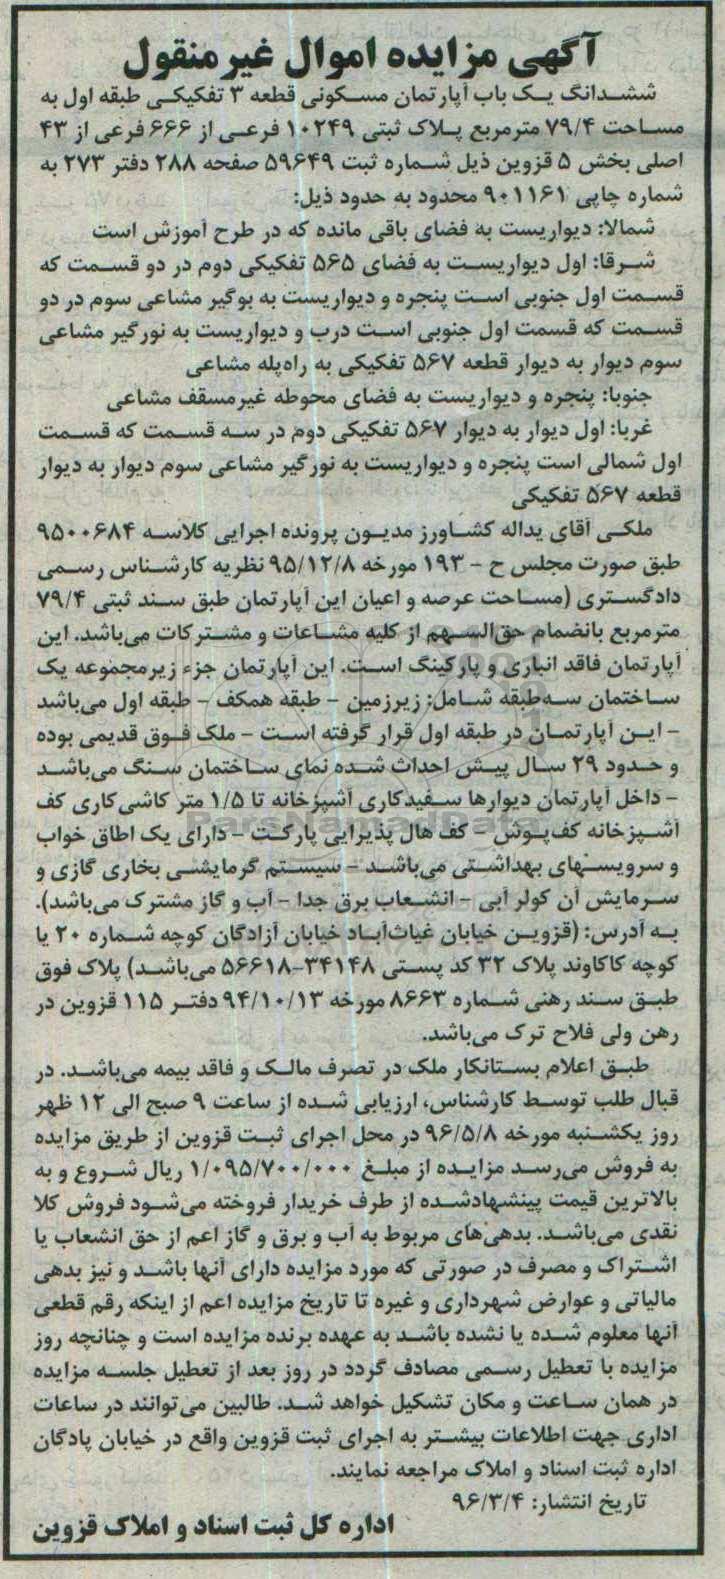 آگهی مزایده اموال غیرمنقول
ششدانگ یک باب آپارتمان مسکونی قطعه ۳ تفکیکی طبقه اول به
مساحت ۷۹/۴ مترمربع پلاک ثبتی ۱۰۲۴۹ فرعی از ۶۶۶ فرعی از ۴۳
اصلی بخش ۵ قزوین ذیل شماره ثبت ۵۹۶۴۹ صفحه ۲۸۸ دفتر ۲۷۳ به
شماره چاپی ۹۰۱۱۶۱ محدود به حدود ذیل:
شمالا: دیواریست به فضای باقی مانده که در طرح آموزش است
شرقا: اول دیواریست به فضای ۵۶۵ تفکیکی دوم در دو قسمت که
قسمت اول جنوبی است پنجره و دیواریست به بوگیر مشاعی سوم در دو
قسمت که قسمت اول جنوبی است درب و دیواریست به نورگیر مشاعی
سوم دیوار به دیوار قطعه ۵۶۷ تفکیکی به راه‌پله مشاعی
جنوبا: پنجره و دیواریست به فضای محوطه غیرمسقف مشاعی
غربا: اول دیوار به دیوار ۵۶۷ تفکیکی دوم در سه قسمت که قسمت
اول شمالی است پنجره و دیواریست به نورگیر مشاعی سوم دیوار به دیوار
قطعه ۵۶۷ تفکیکی
ملکی آقای یداله کشاورز مدیون پرونده اجرایی کلاسه ۹۵۰۰۶۸۴
طبق صورت مجلس ح - ۱۹۳ مورخه ۹۵/۱۲/۸ نظریه کارشناس رسمی
دادگستری (مساحت عرصه و اعیان این آپارتمان طبق سند ثبتی ۷۹/۴
مترمربع بانضمام حق‌السهم از کلیه مشاعات و مشترکات می‌باشد. این
آپارتمان فاقد انباری و پارکینگ است. این آپارتمان جزء زیرمجموعه یک
ساختمان سه‌طبقه شامل: زیرزمین - طبقه همکف - طبقه اول می‌باشد
- این آپارتمان در طبقه اول قرار گرفته است - ملک فوق قدیمی بوده
و حدود ۲۹ سال پیش احداث شده نمای ساختمان سنگ می‌باشد
- داخل آپارتمان دیوارها سفیدکاری آشپزخانه تا ۱/۵ متر کاشی‌کاری کف
آشپزخانه کف‌پوش - کف هال پذیرایی پارکت - دارای یک اطاق خواب
و سرویسهای بهداشتی می‌باشد - سیستم گرمایشی بخاری گازی و
سرمایش آن کولر آبی - انشعاب برق جدا - آب و گاز مشترک می‌باشد).
به آدرس: (قزوین خیابان غیاث‌آباد خیابان آزادگان کوچه شماره ۲۰ یا
کوچه کاکاوند پلاک ۳۲ کد پستی ۳۴۱۴۸-۵۶۶۱۸ می‌باشد) پلاک فوق
طبق سند رهنی شماره ۸۶۶۳ مورخه ۹۴/۱۰/۱۳ دفتر ۱۱۵ قزوین در
رهن ولی فلاح ترک می‌باشد.
طبق اعلام بستانکار ملک در تصرف مالک و فاقد بیمه می‌باشد. در
قبال طلب توسط کارشناس، ارزیابی شده از ساعت ۹ صبح الی ۱۲ ظهر
روز یکشنبه مورخه ۹۶/۵/۸ در محل اجرای ثبت قزوین از طریق مزایده
به فروش می‌رسد مزایده از مبلغ ۱/۰۹۵/۷۰۰/۰۰۰ ریال شروع و به
بالاترین قیمت پیشنهادشده از طرف خریدار فروخته می‌شود فروش کلا
نقدی می‌باشد. بدهی‌های مربوط به آب و برق و گاز اعم از حق انشعاب یا
اشتراک و مصرف در صورتی که مورد مزایده دارای آنها باشد و نیز بدهی
مالیاتی و عوارض شهرداری و غیره تا تاریخ مزایده اعم از اینکه رقم قطعی
آنها معلوم شده یا نشده باشد به عهده برنده مزایده است و چنانچه روز
مزایده با تعطیل رسمی مصادف گردد در روز بعد از تعطیل جلسه مزایده
در همان ساعت و مکان تشکیل خواهد شد. طالبین می‌توانند در ساعات
اداری جهت اطلاعات بیشتر به اجرای ثبت قزوین واقع در خیابان پادگان
اداره ثبت اسناد و املاک مراجعه نمایند.
تاریخ انتشار: ۹۶/۳/۴
اداره کل ثبت اسناد و املاک قزوین
ParsNamadData